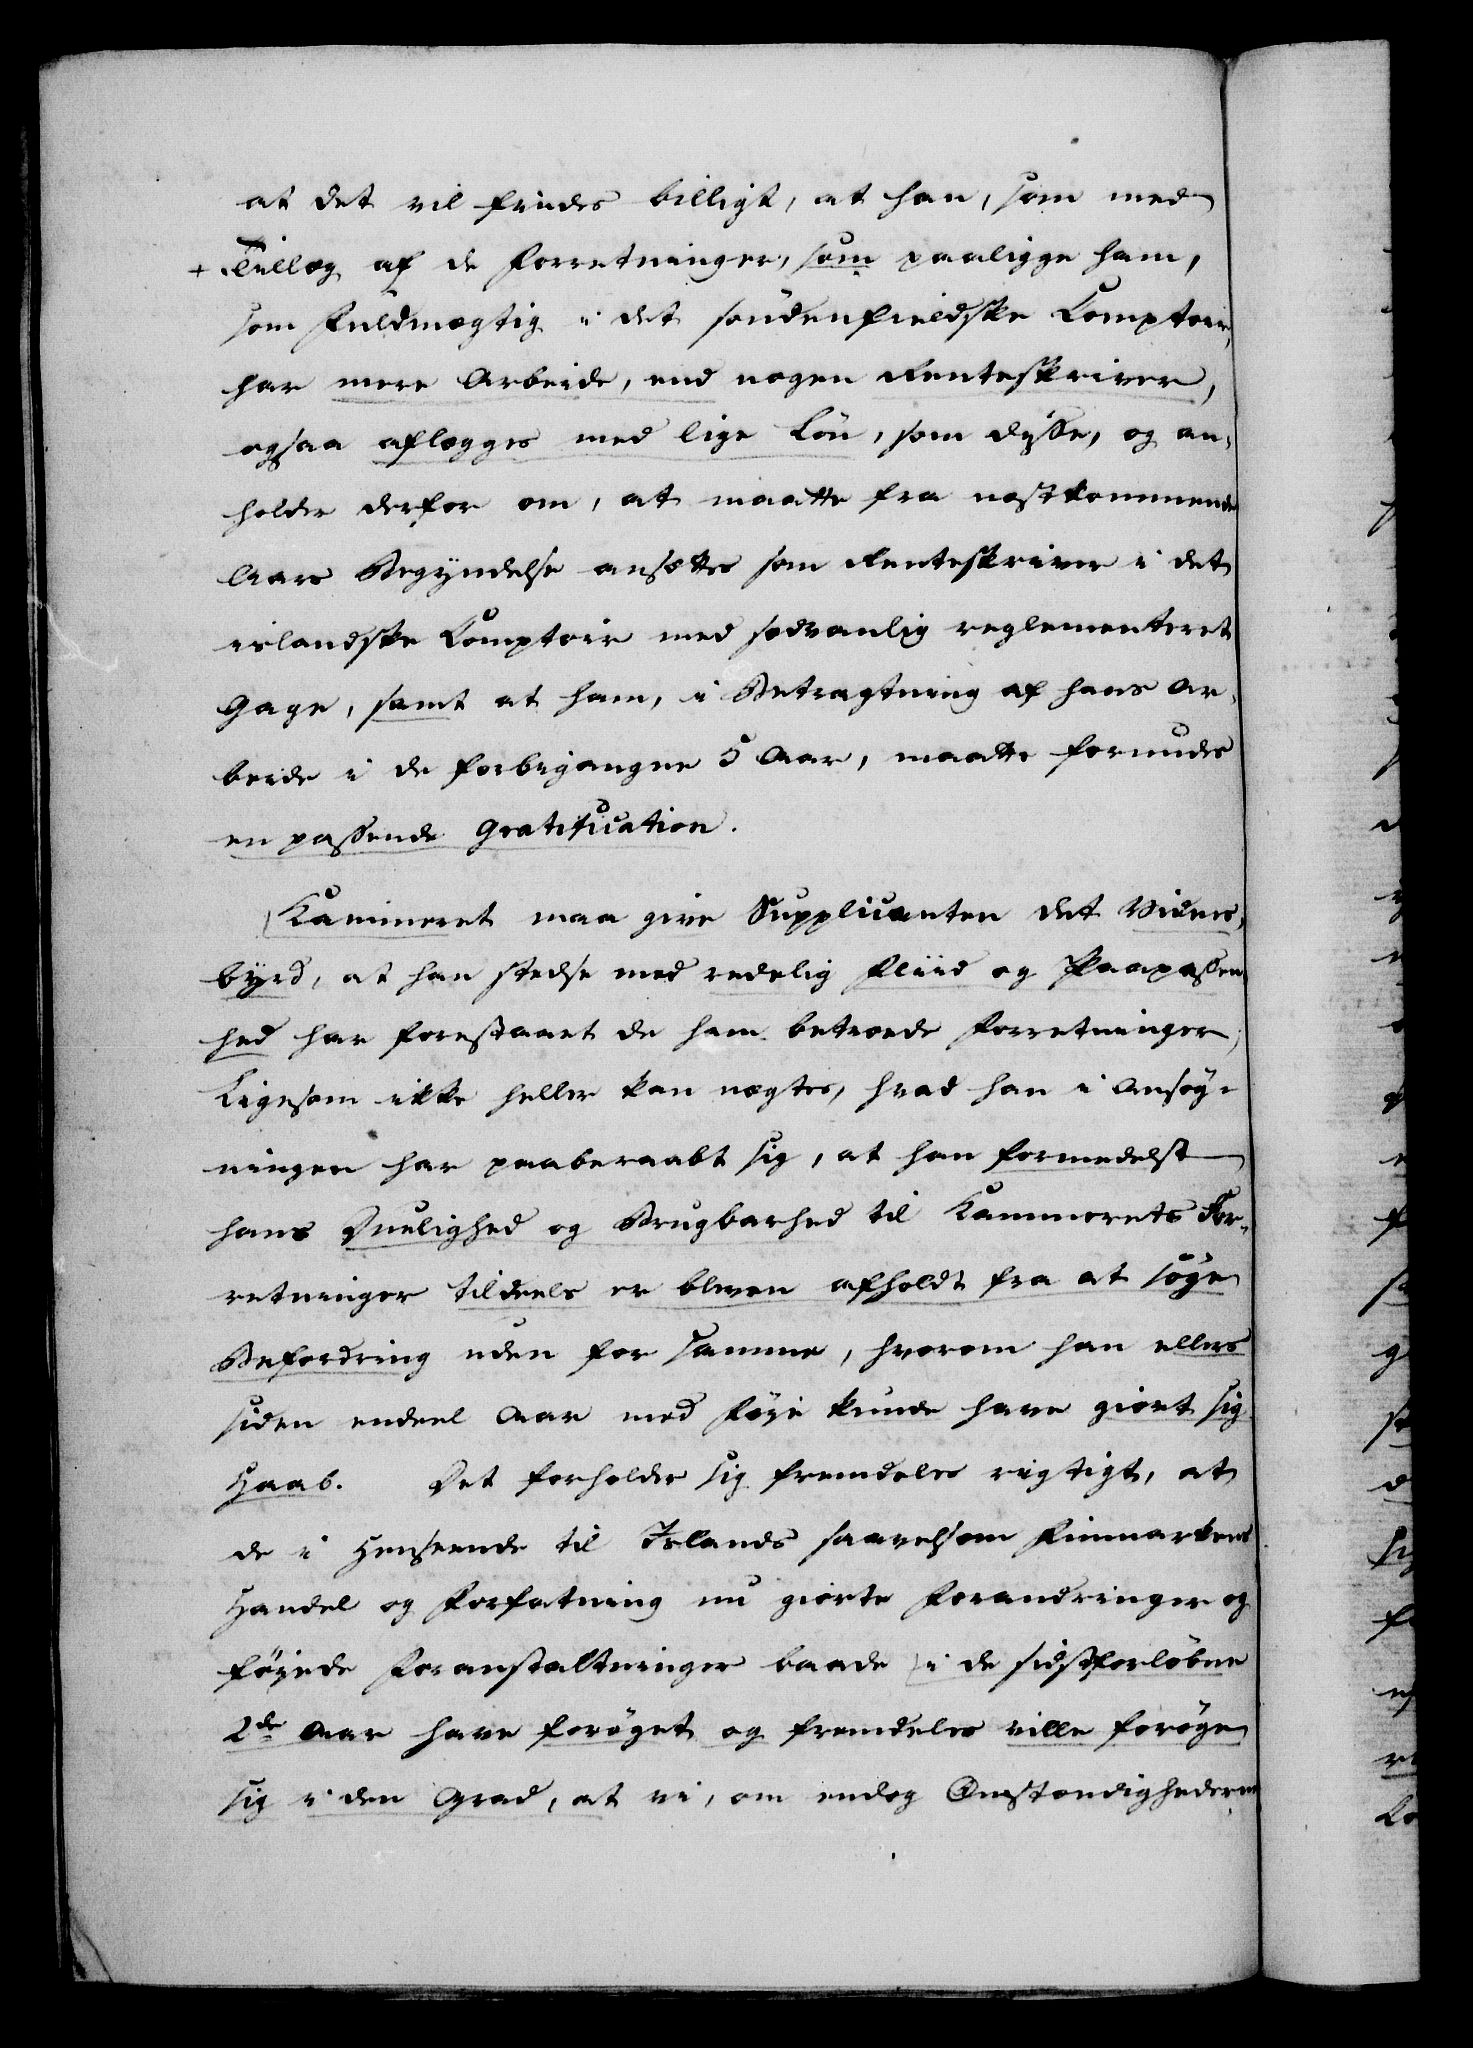 at det vil findes billigt, at han, som med
+ Tillæg af de Forretninger, som paaligge ham,
som Fuldmægtig i det söndenfieldske Comptoir,
har mere Arbeide, end nogen Renteskriver,
ogsaa aflægges med lige Lön, som disse, og an-
holder derfor om, at maatte fra næstkommende
Aars Begyndelse ansættes som Renteskriver i det
islandske Comptoir med sædvanlig reglementeret
Gage, samt at ham, i Betragtning af hans Ar-
beide i de forbigangne 5 Aar, maatte forundes
en passende Gratification.
Kammeret maa give Supplicanten det Vidnes-
byrd, at han stedse med redelig Fliid og Paapassen-
hed har forestaaet de ham betroede Forretninger,
Ligesom ikke heller kan nægtes, hvad han i Ansög-
ningen har paaberaabt sig, at han formedelst
hans Duelighed og Brugbarhed til Kammerets For-
retninger tildeels er bleven afholdt fra at söge
Befordring uden for samme, hvorom han ellers
siden endeel Aar med Föje kunde have giort sig
Haab. Det forholder sig fremdeles rigtigt, at
de i Henseende til Islands saavelsom Finmarkens
Handel og Forfatning nu giorte Forandringer og
föjede Foranstaltninger baade i de sidstforlöbne
2de Aar have foröget og fremdeles ville foröge
sig i den Grad, at vi, om endog Omstændighederne